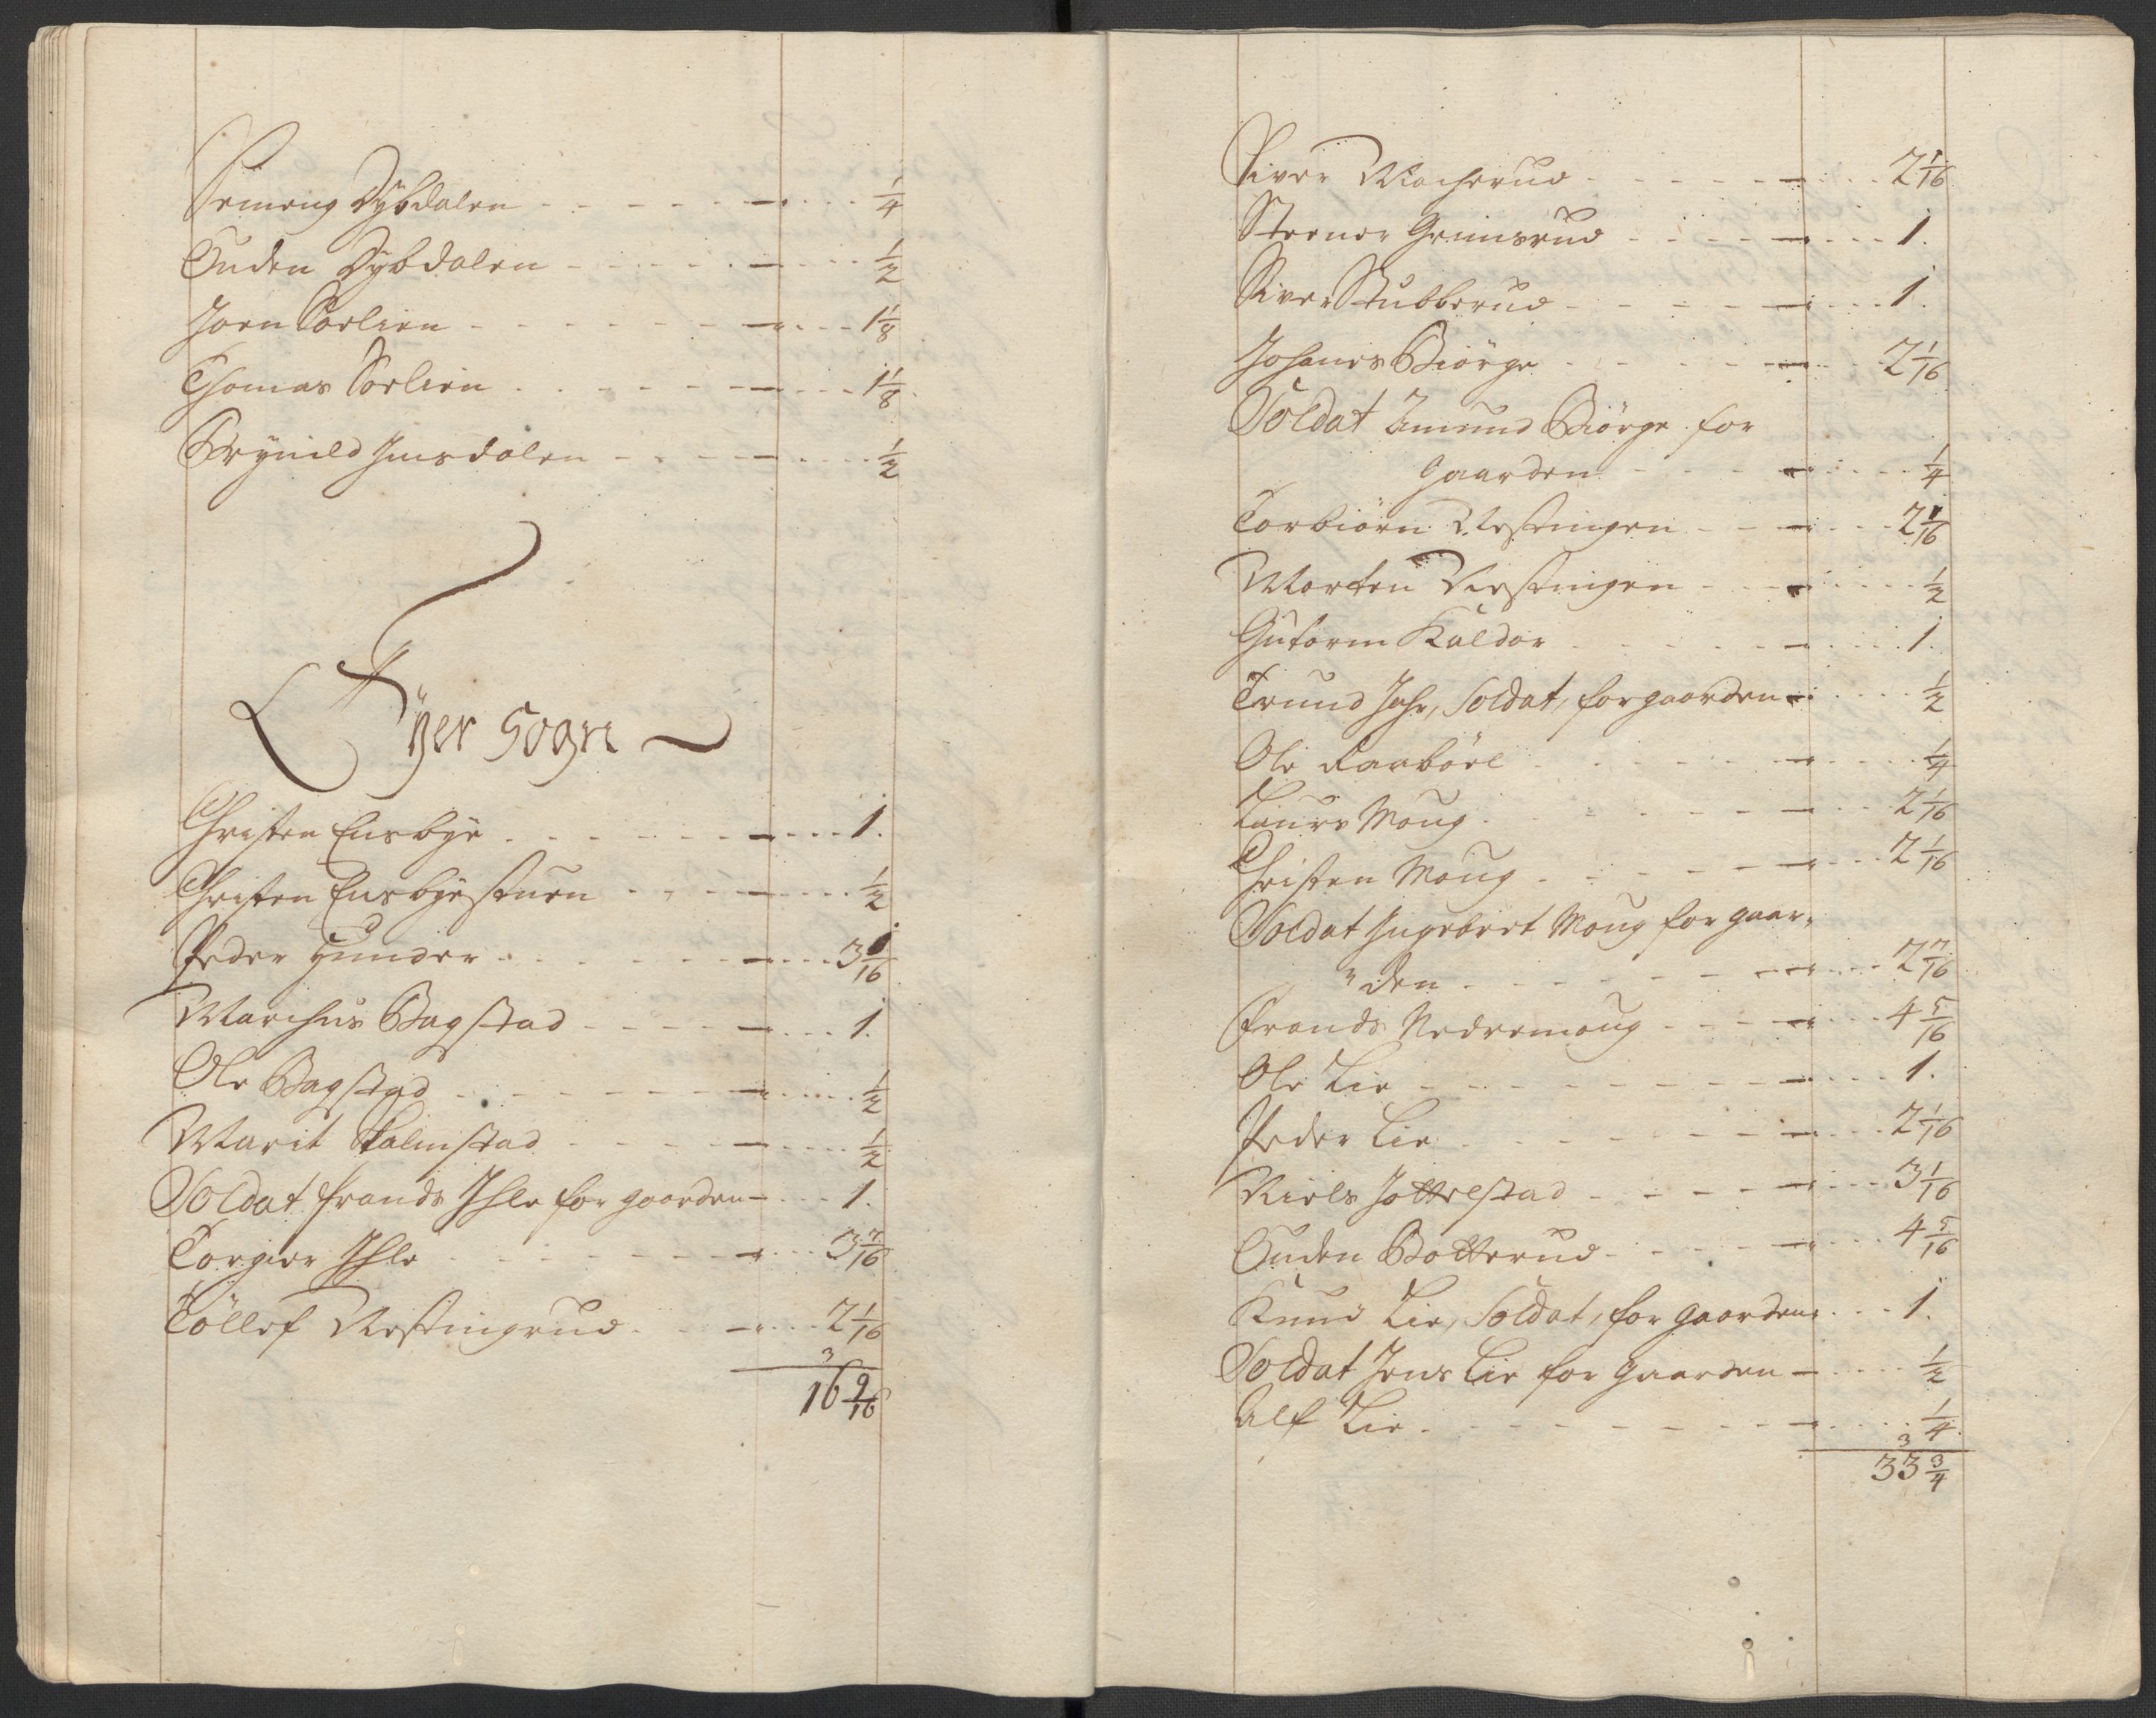 Simeng Dybdalen - - - - - - - 1/4
Ouden Dybdalen - - - - - - - 1/2
Joen Sørlien - - - - - - - 1 1/8
Thomas Sørlien - - - - - - - 1 1/8
Brynild Imsdalen - - - - - - 1/2
Øÿer Sogn
Christen Ensbye - - - - - - 1.
Christen Ensbyestuen - - - - 1/2
Peder Hunder - - - - - - 3 1/16
Marchus Bagstad - - - - - 1.
Ole Bagstad - - - - - - 1/2
Marit Skalmstad - - - - - 1/2
Soldat frands Ihle for gaarden - - - 1.
Torgier Ihle - - - - - - 3 7/16
Töllef Nestingrud - - - - 2 1/16
3
16 9/16
Siver Macherud - - - - - - 2 1/16
Steener Grimsrud - - - - - 1.
Siver Stubberud - - - - - - 1.
Johanes Biörge - - - - - - 2 1/16
Soldat Amund Biörge for
gaarden - - - - - 1/4
Torbiörn Nestingen - - - - 2 1/16
Morten Nestingen - - - - 1/2
Gutorm Kaldor - - - - - - 1.
Trund Jahr, Soldat, for gaarden - - - 1/2
Ole Raaböel - - - - - - 1/4
Laurs Moug - - - - - - 2 1/16
Christen Moug - - - - - - 2 1/16
Soldat Ingebret Moug for gaar„
„den - - - - - - 2 7/16
Frands Nedremoug - - - - 4 5/16
Ole Lie - - - - - - - 1.
Peder Lie - - - - - - 2 1/16
Niels Jottelstad - - - - - 3 1/16
Ouden Botterud - - - - - 4 5/16
Knud Lie, Soldat, for gaarden - - - 1.
Soldat Jens Lie for gaarden - - - 1/2
Alf Lie - - - - - - - 1/4
3
33 3/4